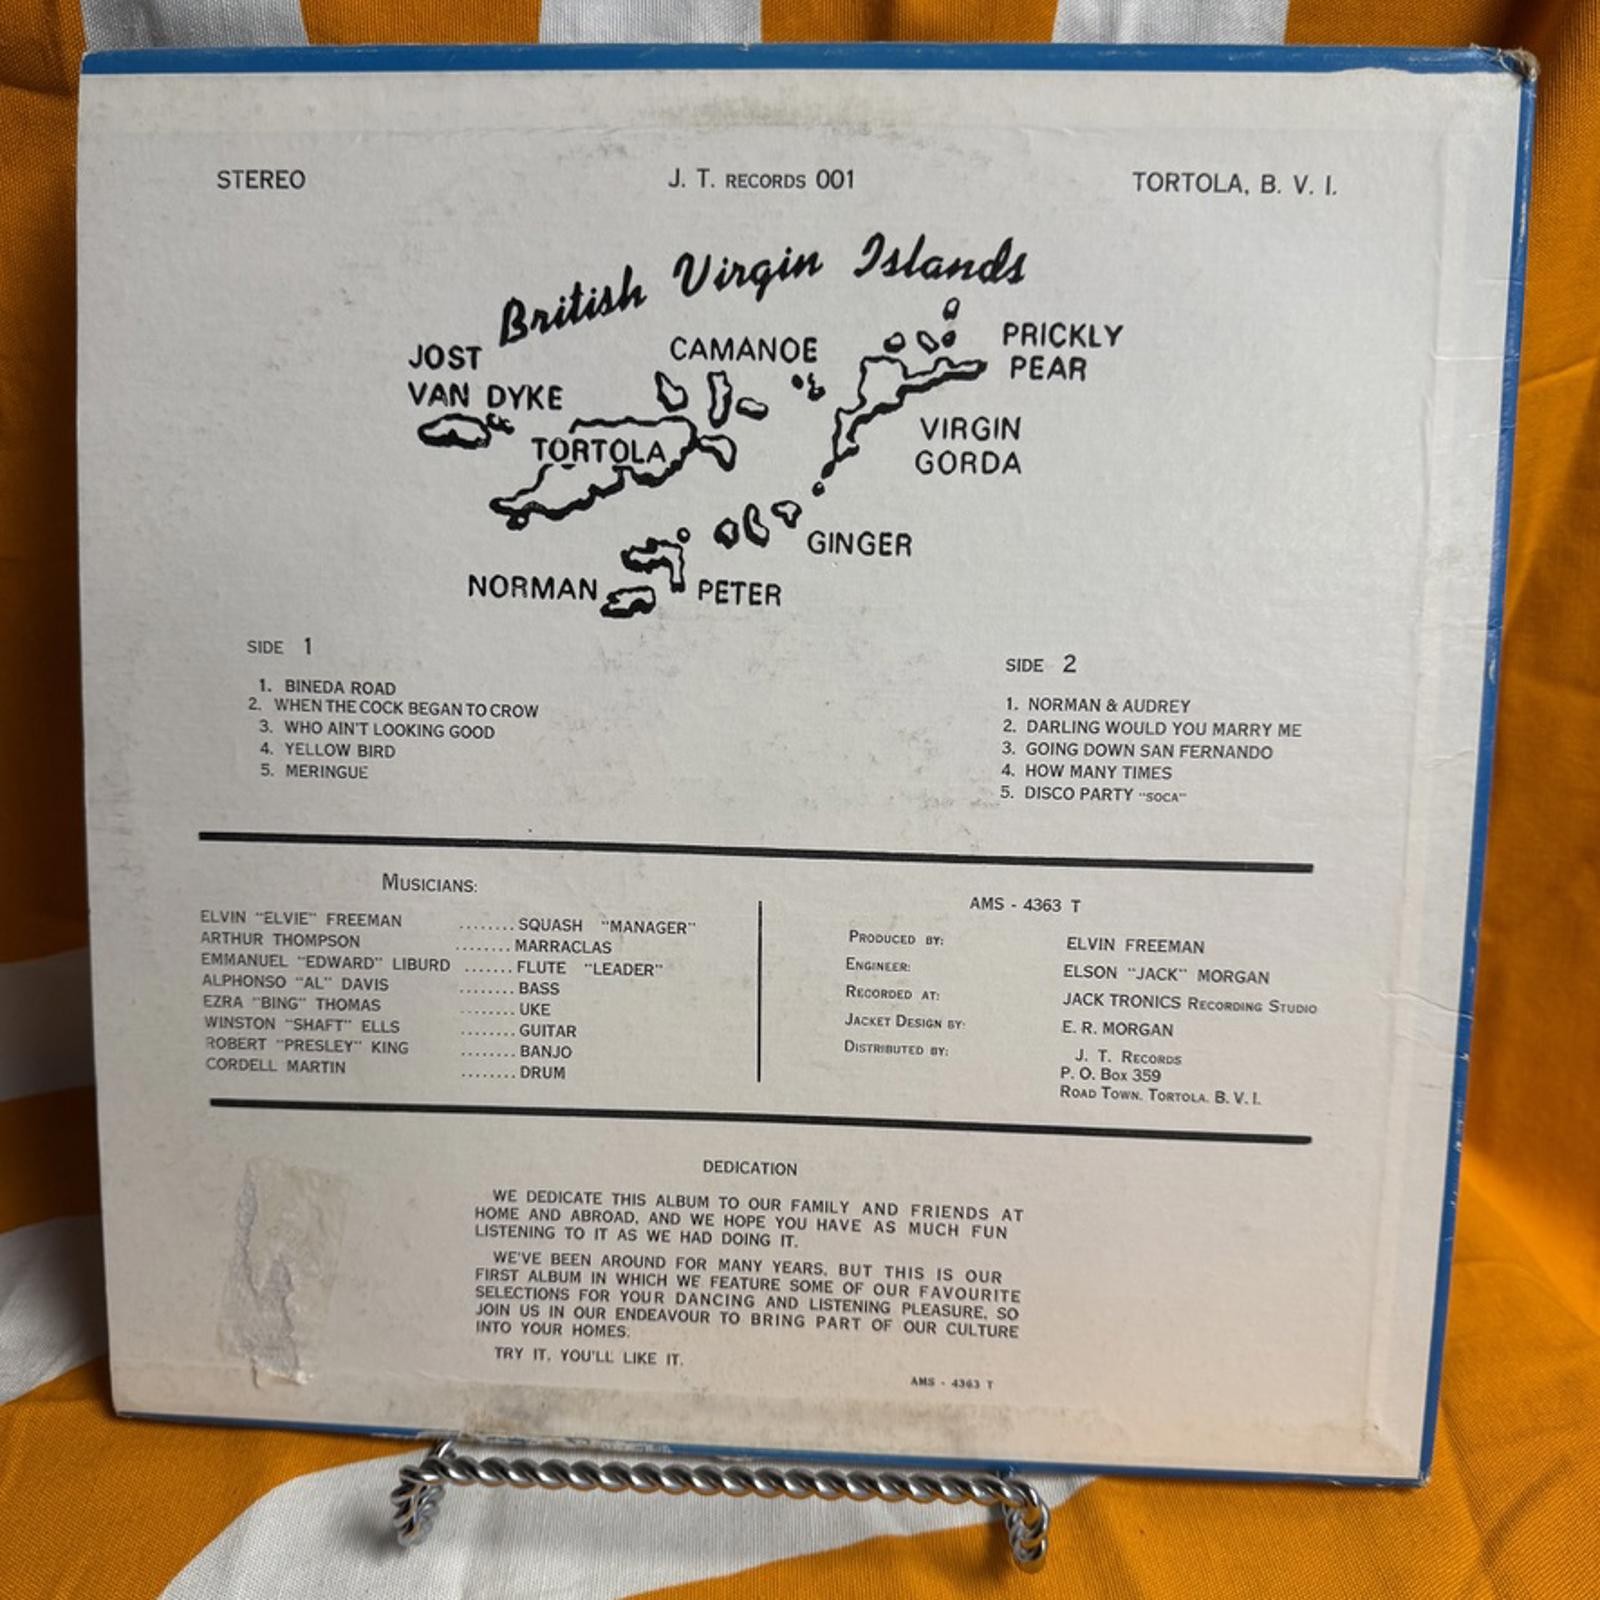 STEREO
J. T. RECORDS 001
TORTOLA, B. V. I.
British Virgin Islands
JOST
VAN DYKE
CAMANOE
PRICKLY
PEAR
TORTOLA
VIRGIN
GORDA
GINGER
NORMAN
PETER
SIDE 1
1. BINEDA ROAD
2. WHEN THE COCK BEGAN TO CROW
3. WHO AIN'T LOOKING GOOD
4. YELLOW BIRD
5. MERINGUE
SIDE 2
1. NORMAN & AUDREY
2. DARLING WOULD YOU MARRY ME
3. GOING DOWN SAN FERNANDO
4. HOW MANY TIMES
5. DISCO PARTY "SOCA"
MUSICIANS:
ELVIN "ELVIE" FREEMAN ........ SQUASH "MANAGER"
ARTHUR THOMPSON ........ MARRACLAS
EMMANUEL "EDWARD" LIBURD ....... FLUTE "LEADER"
ALPHONSO "AL" DAVIS ........ BASS
EZRA "BING" THOMAS ........ UKE
WINSTON "SHAFT" ELLS ........ GUITAR
ROBERT "PRESLEY" KING ........ BANJO
CORDELL MARTIN ........ DRUM
AMS - 4363 T
PRODUCED BY: ELVIN FREEMAN
ENGINEER: ELSON "JACK" MORGAN
RECORDED AT: JACK TRONICS RECORDING STUDIO
JACKET DESIGN BY: E. R. MORGAN
DISTRIBUTED BY: J. T. RECORDS
P. O. BOX 359
ROAD TOWN. TORTOLA. B. V. I.
DEDICATION
WE DEDICATE THIS ALBUM TO OUR FAMILY AND FRIENDS AT
HOME AND ABROAD, AND WE HOPE YOU HAVE AS MUCH FUN
LISTENING TO IT AS WE HAD DOING IT.
WE'VE BEEN AROUND FOR MANY YEARS, BUT THIS IS OUR
FIRST ALBUM IN WHICH WE FEATURE SOME OF OUR FAVOURITE
SELECTIONS FOR YOUR DANCING AND LISTENING PLEASURE, SO
JOIN US IN OUR ENDEAVOUR TO BRING PART OF OUR CULTURE
INTO YOUR HOMES.
TRY IT, YOU'LL LIKE IT.
AMS - 4363 T